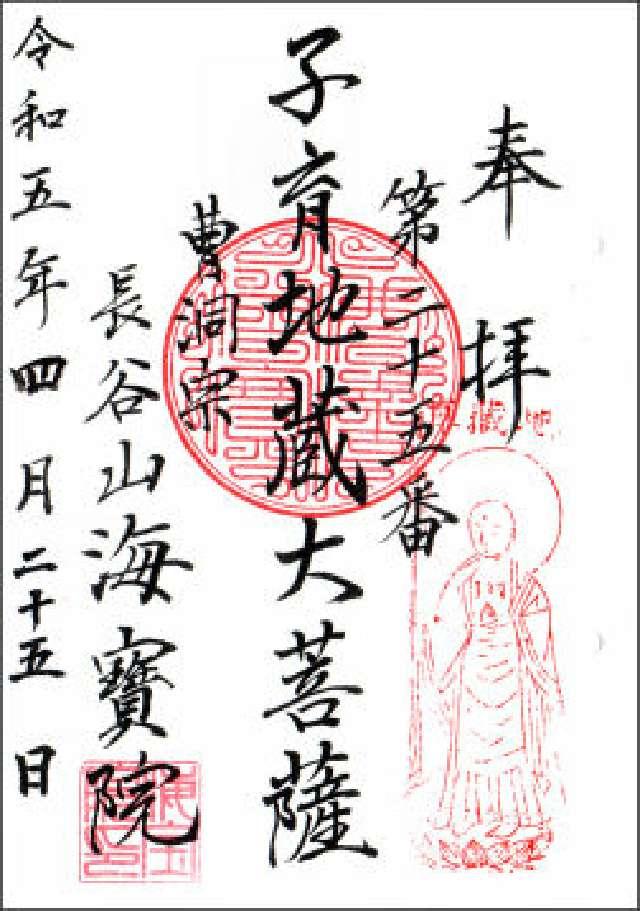 奉拝
第二十五番
子育地蔵大菩薩
曹洞宗
長谷山海寶院
令和五年四月二十五日